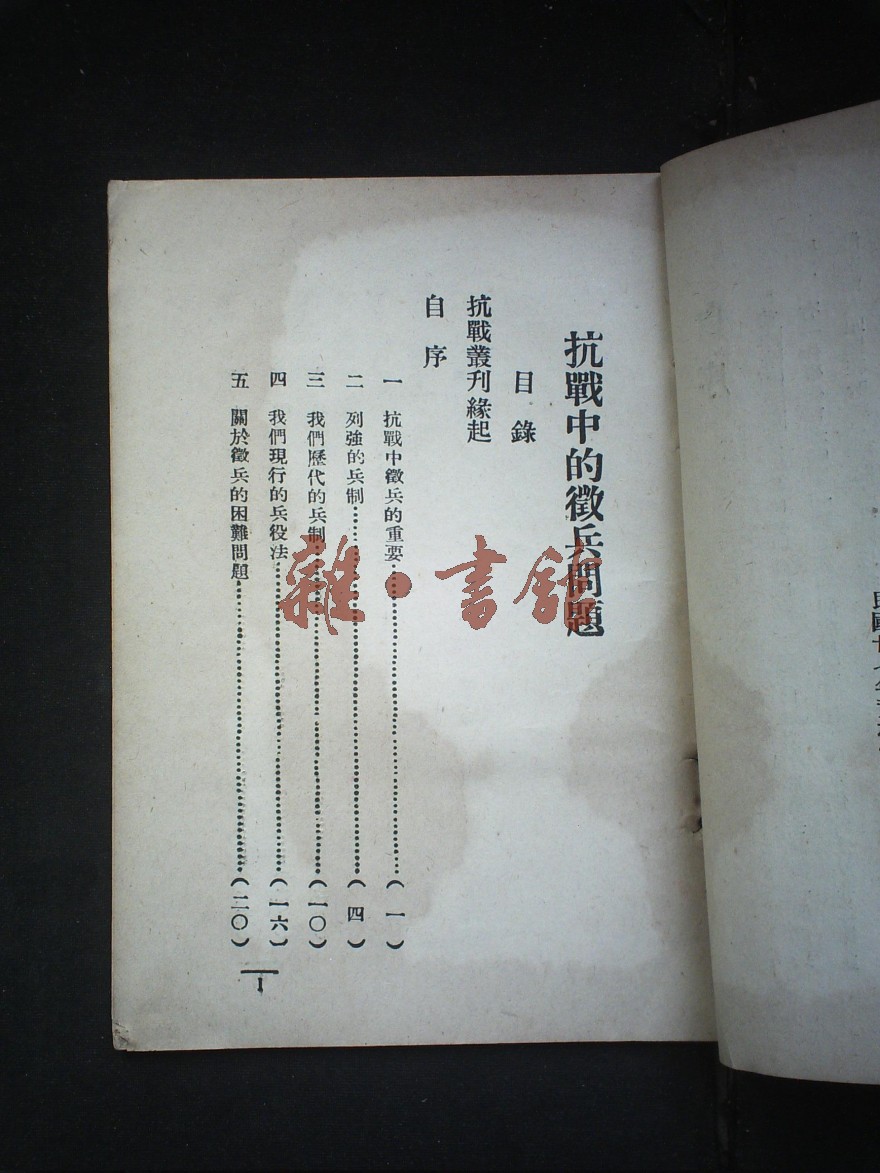 抗戰中的徵兵問題
目錄
抗戰叢刊緣起
自序
一 抗戰中徵兵的重要……(一)
二 列強的兵制……(四)
三 我們歷代的兵制……(一〇)
四 我們現行的兵役法……(一六)
五 關於徵兵的困難問題……(二〇)
1
雜·書館